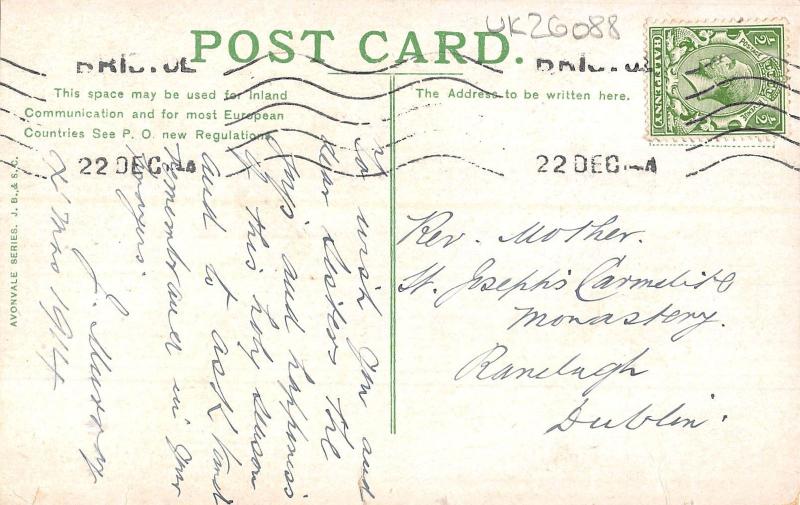 UK26088
POST CARD.
BRISTOL
BRISTOL
HALFPENNY
POSTAGE
This space may be used for Inland
Communication and for most European
Countries See P. O. new Regulations.
The Address to be written here.
22 DEC
22 DEC
AVONVALE SERIES. J. B., & S. C.
To wish you and
dear Sisters the
joys and happiness
of this holy season
and to ask kind
remembrance in your
prayers.
J. 
X'mas 1914
Rev. Mother.
St. Joseph's Carmelite
Monastery.
Ranelagh
Dublin.